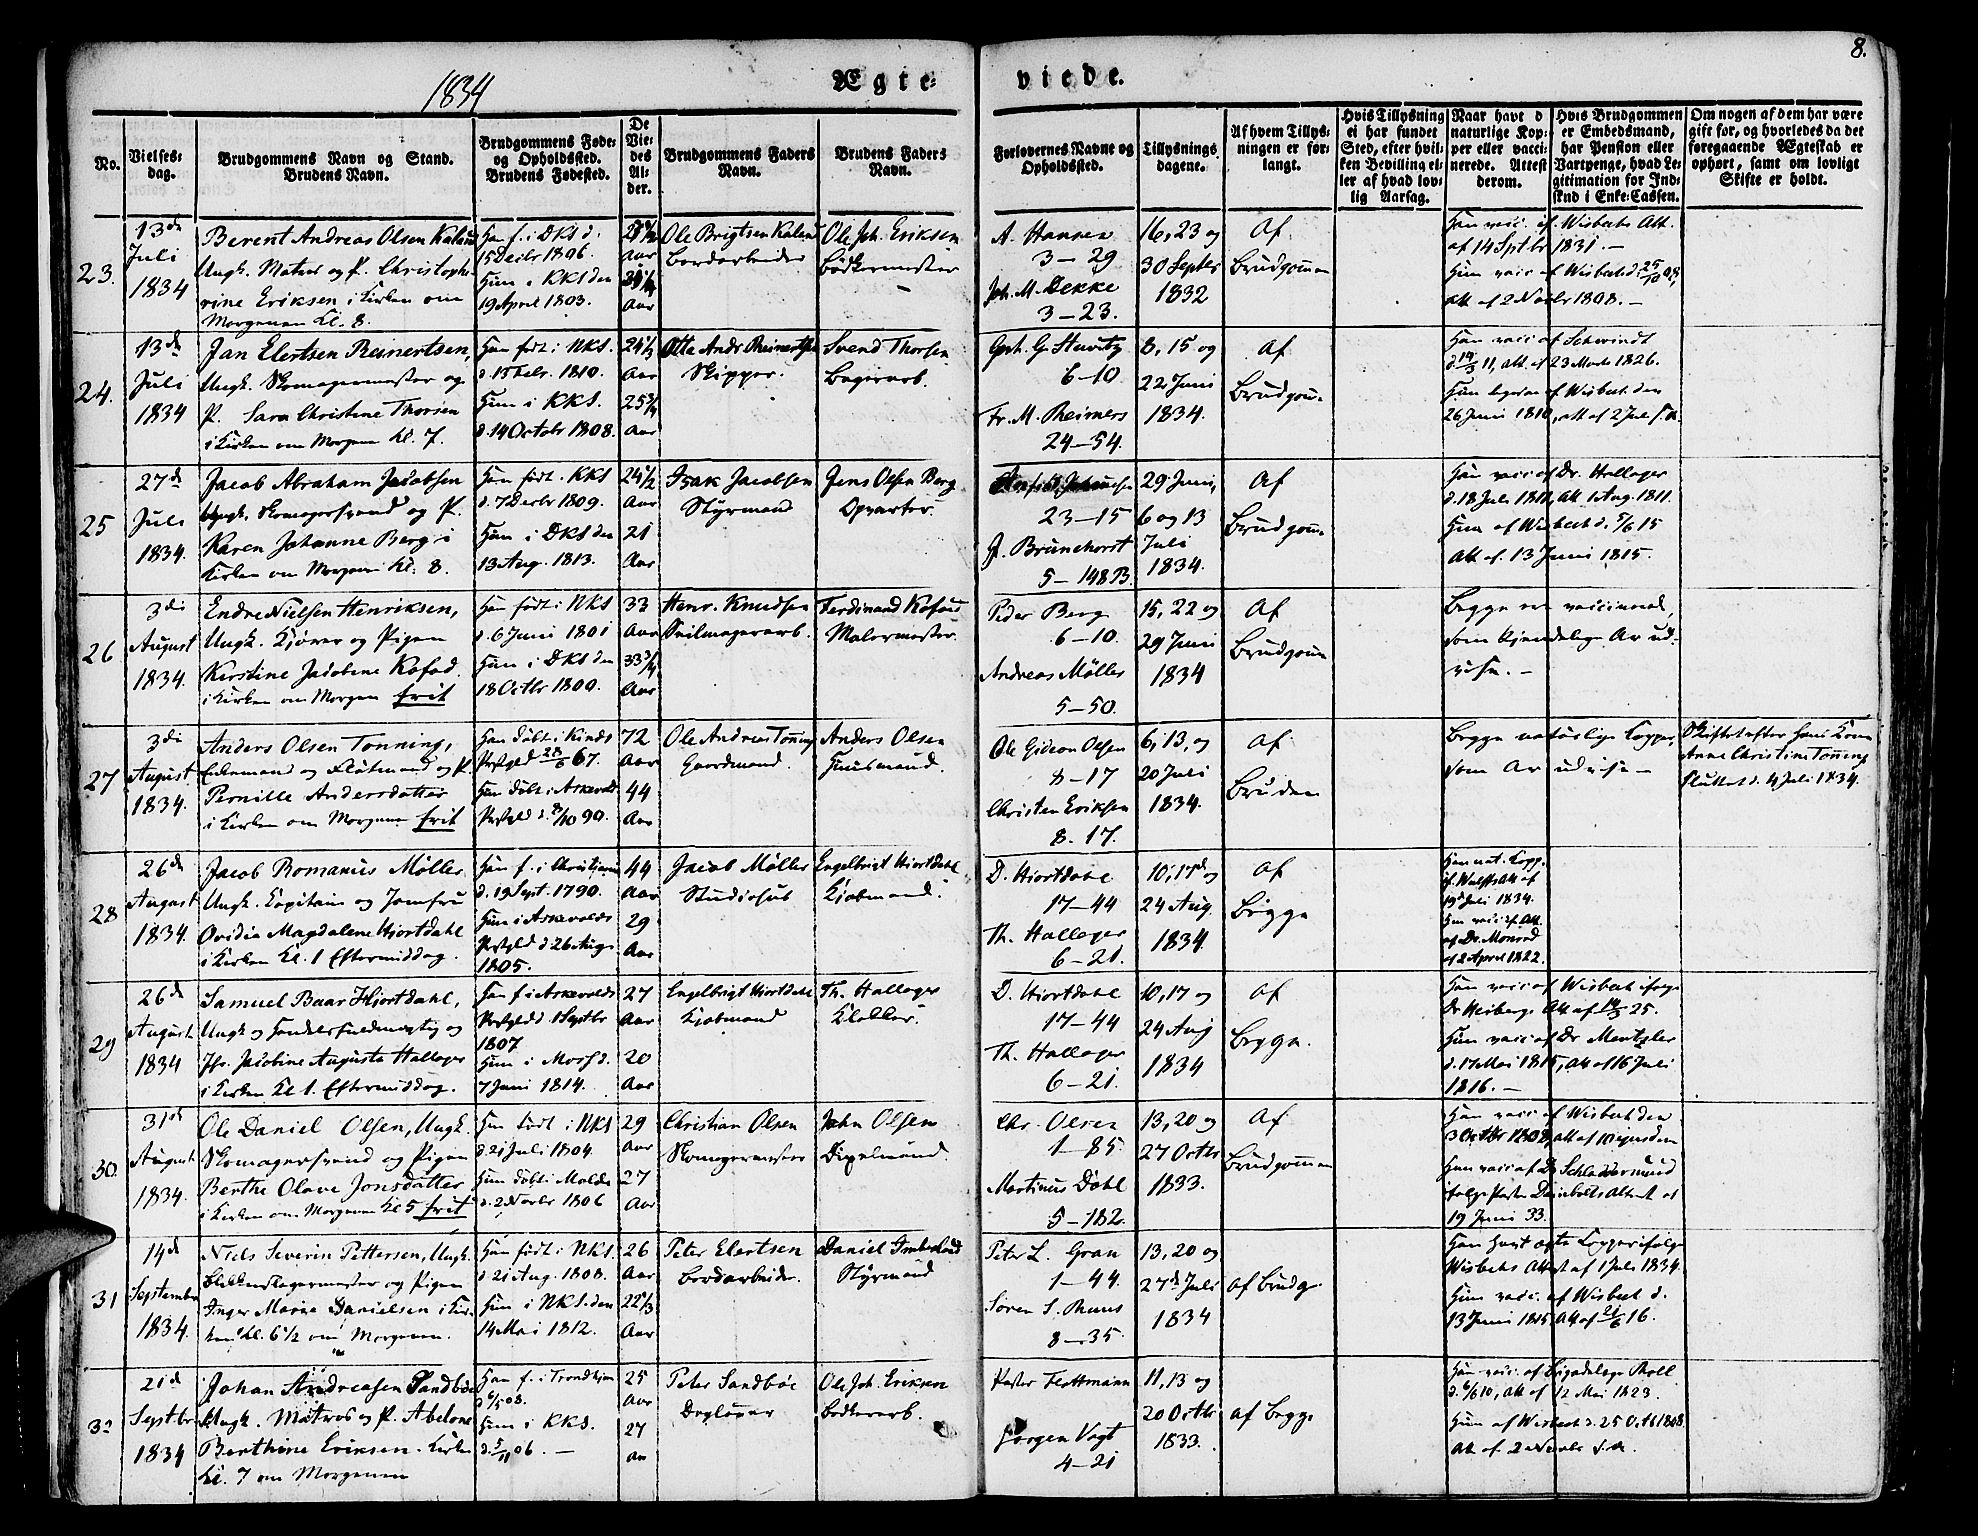 8.
1834
Ægte-
viede.
No.
Vielses-
dag.
Brudgommens Navn og Stand.
Brudens Navn.
Brudgommens Føde-
og Opholdssted.
Brudens Fødested.
De
Vie-
des
Al-
der.
Brudgommens Faders
Navn.
Brudens Faders
Navn.
Forlovernes Navne og
Opholdssted.
Tillysnings
dagene.
Af hvem Tillys-
ningen er for-
langt.
Hvis Tillysning
ei har fundet
Sted, efter hvil-
ken Bevilling el-
ler af hvad lov-
lig Aarsag.
Naar havt d
naturlige Kop-
per eller vacci-
nerede. Attest
derom.
Hvis Brudgommen
er Embedsmand,
har Pension eller
Vartpenge, hvad Le-
gitimation for Ind-
skud i Enke-Cassen.
Om nogen af dem har være
gift før, og hvorledes da det
foregaaende Ægteskab er
ophørt, samt om lovligt
Skifte er holdt.
23.
13de
Juli
1834
Berent Andreas Olsen
Ungk. Matros og P. Christoph-
rine Eriksen i Kirken om
Morgenen Kl. 8.
Han f. i DKS d.
15 Decbr 1806.
Hun i KKS den
19 April 1803.
Aar
Aar
Ole Brigtsen
Bordarbeider
Ole Joh. Eriksen
Bødkermester
A. Hansen
3-29
Joh. M. Dekke
3-23.
16, 23 og
30 Septbr
1832
Af
Brudgommen
Han vacc. af Wisbech Att.
af 14 Sptbr 1831.-
Hun vacc. af Wisbech d. 25/10 08,
Att. af 2 Novbr 1808.-
24.
13de
Juli
1834
Jan Elertsen Reinertsen,
Ungk. Skomagermester og
P. Sara Christine Thorsen
i Kirken om Morgenen Kl. 7.
Han født i NKS.
d. 15 Febr. 1810.
Hun i KKS.
d. 14 Octobr 1808.
24 1/3
Aar
25 3/4
Aar
Otte Andr Reinertsen
Skipper.
Svend Thorsen
6-10.
Fr. M. Reimers
24-54.
8, 15 og
22 Juni
1834.
Af
Brudgom.
Han vacc. af Schwindt
Att. af 23 Marts 1826.
Hun af Wisbech den
26 Juni 1810, Att. af 2 Juli s. A.
25
27de
Juli
1834.
Jacob Abraham Jacobsen
Ungk. Skomagersvend og P.
Karen Johanne Berg i
Kirken om Morgenen Kl. 8.
Han født i KKS
d. 7 Decbr 1809.
Hun i DKS den
13 Aug. 1813.
24 1/2
Aar
21
Aar
Isak Jacobsen
Styrmand
Jens Olsen Berg
Opvarter.
23-15
J. Brunchorst
5-148B.
29 Juni,
6 og 13
Juli
1834.
Af
Brudgom.
Han vacc af Dr. Hallager
d. 18 Juli 1811, Att. 1 Aug. 1811.
Hun af Wisbech d. 5/6 15
Att. af 13 Juni 1815.
26
3die
August
1834.
Endre Nielsen Henriksen,
Ungk. Kjører og Pigen
Kirstine Jacobine Kofod.
i Kirken om Morgen frit
Han født i NKS
d. 6 Juni 1801
Hun i DKS den
18 Octbr 1800.
33
Aar
33 3/4
Aar
Henr. Knudsen
Seilmagerarb.
Ferdinand Kofoed
Malermester.
Peder Berg
6-10.
Andreas Møller
5-50.
15, 22 og
29 Juni
1834
Af
Brudgom
Begge ere vaccinerede,
som kjendelige Ar ud-
vise.-
27
3die
August
1834.
Anders Olsen Tonning,
Enkemand og Fløtmand og P.
Pernille Andersdatter
i Kirken om Morgenen frit
Han døbt i Kinds
Præstegjeld 67.
Hun døbt i Askevolds
Præstegjeld d. 8/10 90.
72
Aar
44
Aar
Ole Andreas Tonning
Gaardmand.
Anders Olsen
Huusmand.
Ole Gideon Olsen
8-17
Christen Eriksen
8.17.
6, 13, og
20 Juli
1834.
Af
Bruden
Begge naturlige Kopper,
som Ar udvise-
Skiftet efter Hans Kone
Anne Christine Tonning
sluttet d. 4 Juli 1834.
28
26de
August
1834.
Jacob Romanus Møller
Ungk. Capitain og Jomfru
Ovidia Magdalene Hjortdahl
i Kirken Kl. 1 Eftermiddag.
Han f. i Christiania
d. 19 Sept. 1790.
Hun i Askevolds
Præstegjeld d 26 Aug.
1805.
44
Aar
29
Aar
Jacob Møller
Engelbrigt Hjortdahl
Kjøbmand.
D. Hjortdahl
17-44
Th. Hallager
6-21.
10, 17de og
24 Aug.
1834
Af
Begge
Han nat. Kopp.
19 Juli 1834.
Hun vacc. af Att.
af Dr. Monrad
af 2 April 1822.
29
26de
August
1834
Samuel Baar Hjortdahl,
Ungk og Handelsfuldmægtig og
Jfr. Jacobine Augusta Hallager
i Kirken Kl 1. Eftermiddag.
Han f. i Askevolds
Præstegjeld d. 1 Septbr
1807
Hun i Moss d.
7 Juni 1814.
27
Aar
20
Aar
Engelbrigt Hjortdahl
Kjøbmand
Th. Hallager
Klokker.
D. Hjortdahl
17-44
Th. Hallager
6-21.
10, 17 og
24 Aug
1834
Af
Begge.
Han vacc af Wisbech ifølge
Dr Heibergs Att af 25.
Hun vacc af Dr Mentzler
d. 17 Mai 1815, Att. af 16 Juli
1816.-
30.
31te
August
1834.
Ole Daniel Olsen, Ungk.
Skomagersvend og Pigen
Berthe Olave Jonsdatter
i Kirken om Morgenen Kl 5 frit
Han født i NKS
d 21 Juli 1804.
Hun døbt i Molde
d. 2 Novbr 1806
29
Aar
27
Aar
Christian Olsen
Skomagermester
John Olsen
Chr. Olsen
1-85.
Martinus Dahl
5-182.
13, 20 og
27 Octbr
1833.
Af
Brudgommen
Han vacc af Wisbech den
3 Octbr 1808, Att af 10
Hun vacc af Dr Schladermund
ifølge Pastor Attest af
19 Juni 33.
31
14de
September
1834.
Niels Severin Pettersen, Ungk.
Blikkenslagermester og Pigen
Inger Marie Danielsen i Kir-
ken Kl. 6 1/2 om Morgenen.
Han født i NKS.
d 21 Aug. 1808.
Hun i NKS. den
14 Mai 1812.
26
Aar
22 1/3
Aar
Peter Elertsen
Bordarbeider.
Daniel
Styrmand
Peter L. Gran
1-44.
Søren S. Ruus
8-35.
13, 20 og
27de Juli
1834
af Brudg.
Han havt ægte Kopper ifølge
Wisbechs Attest af 1 Juli 1834.
Hun vacc. af Wisbech d.
13 Juni 1815 Att af 21/6 16.
32
21de
Septbr
1834
Johan Andreasen Sandbøe
Ungk. Matros og P. Abelone
Berthine Eriksen. Kirken
Kl. 7 om Morgenen
Han f. i Trondhjem
6/5 08.
Hun i KKS.
d. 5/11 06.-
25
Aar
27
Aar
Peter Sandbøe
Daglønner
Ole Joh. Eriksen
Bødkerarb.
Jørgen Vogt
4-21
11, 13 og
20 Octbr
1833.
af Begge
Han vacc. af
Att. af 12 Mai 1823.
Hun af Wisbech d. 25 Oct 1808.
Att af 2 Novembr s. A.